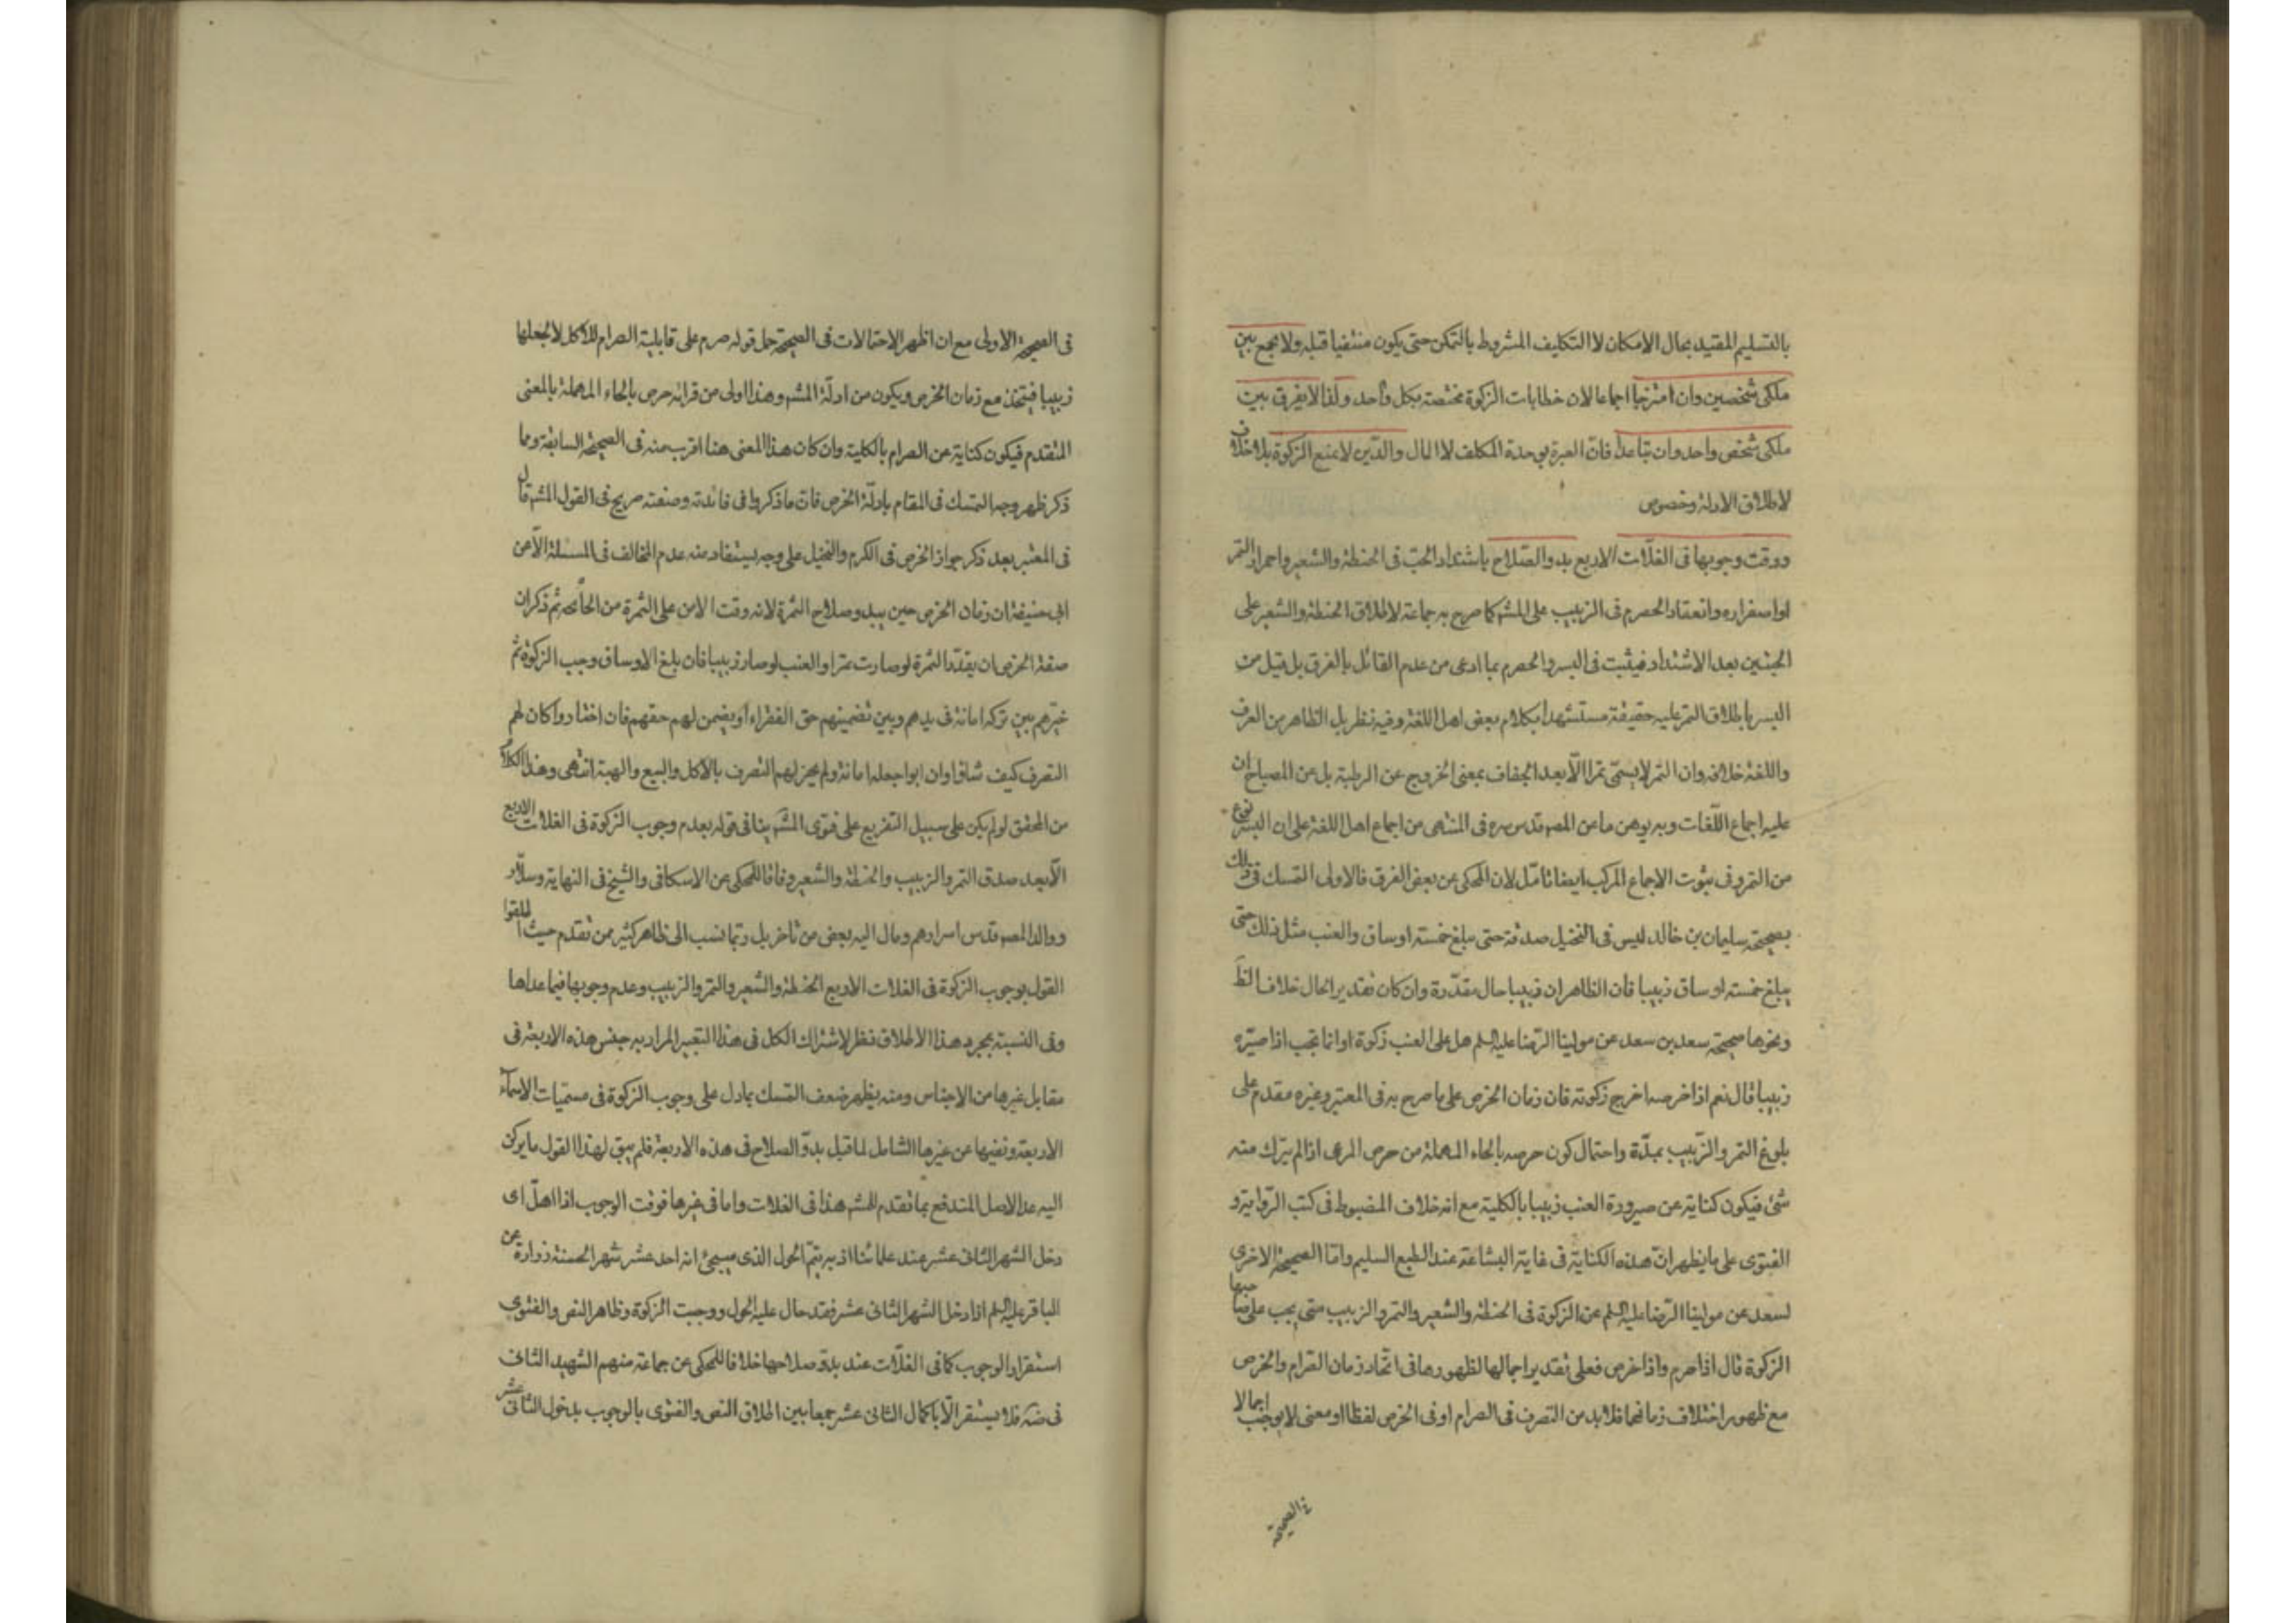 بالتسليم المقيد بحال الامكان لا التكليف المشروط بالتمكن حتى يكون منتفيا قبله ولا يجمع بين
ملكى شخصين وان امتزجا اجماعا لان خطابات الزكوة مختصة بكل واحد ولذا لا يفرق بين
ملكى شخص واحد وان تباعدا فان العبرة بوحدة المكلف لا المال والدّين لا يمنع الزكوة بلا خلاف
لاطلاق الادلة وخصوص
ووقت وجوبها فى الغلّات الاربع بدو الصّلاح باشتداد الحبّ فى الحنطة والشعير واحمرار التمر
او اصفراره وانعقاد الحصرم فى الزبيب على المشهـ كما صرح به جماعة لاطلاق الحنطة والشعير على
الحبّتين بعد الاشتداد فيثبت فى البسر والحصرم بما ادعى من عدم القائل بالفرق بل قيل من
البسر باطلاق التمر عليه حقيقة مستشهدا بكلام بعض اهل اللغة وفيه نظر بل الظاهر من العرف
واللغة خلافه وان التمر لا يسمّى تمرا الّا بعد الجفاف بمعنى الخروج عن الرطبة بل عن المصباح ان
عليه اجماع اللّغات وبه يوهن ما عن المصـ قدس سره فى المنتهى من اجماع اهل اللغة على ان البسر نوع
من التمر وفى ثبوت الاجماع المركب ايضا تامّل لان المحكى عن بعض الفرق فالاولى التمسك فى ذلك
بصحيحة سليمان بن خالد ليس فى النخيل صدقة حتى يبلغ خمسة اوساق والعنب مثل ذلك حتى
يبلغ خمسة اوساق زبيبا فان الظاهر ان زبيبا حال مقدّرة وان كان تقدير الحال خلاف الظَ
ونحوها صحيحة سعد بن سعد عن مولينا الرّضا عليه السلم هل على العنب زكوة او انما تجب اذا صيّره
زبيبا قال نعم اذا خرصه اخرج زكوته فان زمان الخرص على ما صرح به فى المعتبر وغيره مقدم على
بلوغ التمر والزّبيب بمدّة واحتمال كون حرصه بالحاء المهملة من حرص المرعى اذا لم يترك منه
شئ فيكون كناية عن صيرورة العنب زبيبا بالكلية مع انه خلاف المضبوط فى كتب الرّواية و
الفتوى على ما يظهر انّ هذه الكناية فى غاية البشاعة عند الطبع السليم وامّا الصحيحة الاخرى
لسعد عن مولينا الرّضا عليه السلم عن الزكوة فى الحنطة والشعير والتمر والزبيب متى يجب على صاحبها
الزكوة قال اذا صرم واذا خرص فعلى تقدير اجمالها لظهورها فى اتّحاد زمان الصّرام والخرص
مع ظهور اختلاف زمانهما فلا بد من التصرف فى الصرام او فى الخرص لفظا او معنى لا يوجب اجمالا
فى الصحيحة
فى الصحيحة الاولى مع ان اظهر الاحتمالات فى الصحيحة حمل قوله صرم على قابلية الصرام للاكل لا لجعلها
زبيبا فيتحد مع زمان الخرص ويكون من ادلّة المشهـ وهذا اولى من قرائة حرص بالحاء المهملة بالمعنى
المتقدم فيكون كناية عن الصرام بالكلية وان كان هذا المعنى هنا اقرب منه فى الصحيحة السابقة ومما
ذكر ظهر وجه التمسك فى المقام بادلّة الخرص فان ما ذكروا فى فائدته وصفته صريح فى القول المشهـ قال
فى المعتبر بعد ذكر جواز الخرص فى الكرم والنخيل على وجه يستفاد منه عدم المخالف فى المسئلة الّا عن
ابى حنيفة ان زمان الخرص حين يبدو صلاح الثمرة لانه وقت الامن على الثمرة من الجائحه ثم ذكر ان
صفة الخرص ان يقدّر الثمرة لو صارت تمرا والعنب لو صار زبيبا فان بلغ الاوساق وجب الزكوة ثم
خيّرهم بين تركه امانة فى يدهم وبين تضمينهم حق الفقراء او يضمن لهم حقهم فان اختاروا كان لهم
التصرف كيف شاؤا وان ابوا جعله امانة ولم يجز لهم التصرف بالاكل والبيع والهبة انتهى وهذا الكلام
من المحقق لو لم يكن على سبيل التفريع على فتوى المشهـ ينافى قوله بعدم وجوب الزكوة فى الغلات الاربع
الّا بعد صدق التمر والزبيب والحنطة والشعير وفاقا للمحكى عن الاسكافى والشيخ فى النهاية وسلّار
ووالد المصـ قدس اسرارهم ومال اليه بعض من تاخر بل ربّما نسب الى ظاهر كثير ممن تقدم حيث اطلقوا
القول بوجوب الزكوة فى الغلات الاربع الحنطة والشعير والتمر والزبيب وعدم وجوبها فيما عداها
وفى النسبة بمجرد هذا الاطلاق نظر لاشتراك الكل فى هذا التعبير المراد به جنس هذه الاربعة فى
مقابل غيرها من الاجناس ومنه يظهر ضعف التمسك بما دل على وجوب الزكوة فى مسميات الاسماء
الاربعة ونفيها عن غيرها الشامل لما قبل بدوّ الصلاح فى هذه الاربعة فلم يبق لهذا القول ما يركن
اليه عدا الاصل المندفع بما تقدم للمشهـ هذا فى الغلات واما فى غيرها فوقت الوجوب اذا اهلّ اى
دخل الشهر الثانى عشر عند علمائنا اذ به يتمّ الحول الذى سيجئ انه احد عشر شهرا لحسنة زرارة عن
الباقر عليه السلم اذا دخل الشهر الثانى عشر فقد حال عليه الحول ووجبت الزكوة وظاهر النص والفتوى
استقرار الوجوب كما فى الغلّات عند بدوّ صلاحها خلافا للمحكى عن جماعة منهم الشهيد الثانى
فى ضه فلا يستقر الّا باكمال الثانى عشر جمعا بين اطلاق النص والفتوى بالوجوب بدخول الثانى عشر